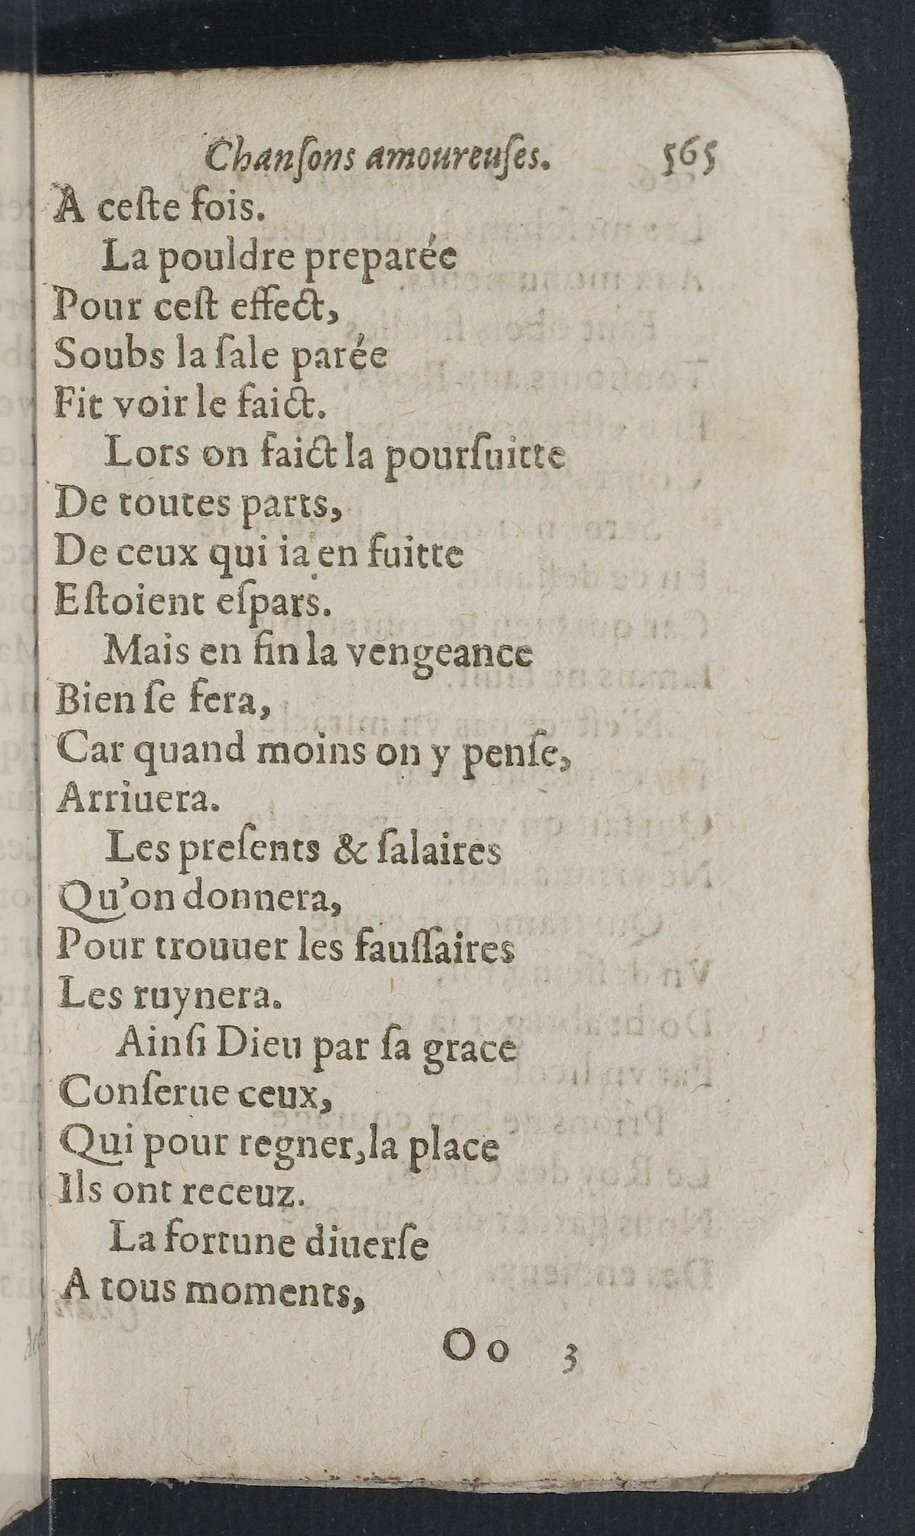 Chanſons amoureuſes. 565
A ceſte fois.
La pouldre preparée
Pour ceſt effect,
Soubs la ſale parée
Fit voir le faict.
Lors on faict la pourſuitte
De toutes parts,
De ceux qui ia en fuitte
Eſtoient eſpars.
Mais en fin la vengeance
Bien ſe fera,
Car quand moins on y penſe,
Arriuera.
Les preſents & ſalaires
Qu'on donnera,
Pour trouuer les fauſſaires
Les ruynera.
Ainſi Dieu par ſa grace
Conſerue ceux,
Qui pour regner, la place
Ils ont receuz.
La fortune diuerſe
A tous moments,
Oo 3